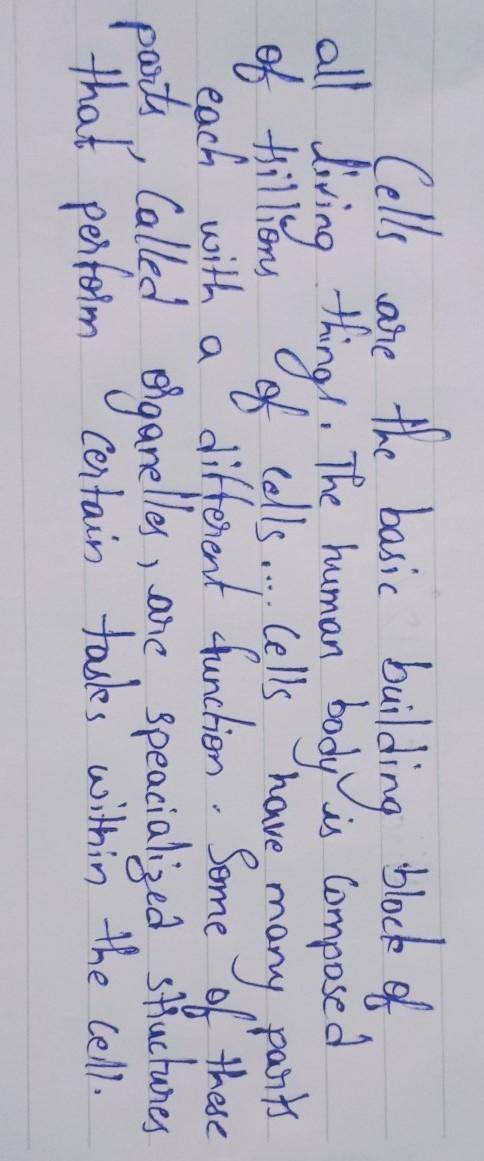 Cells are the basic building block of
all living things. The human body is composed
of trillions of cells.... Cells have many parts
each with a different function. Some of these
parts, Called organelles, are speacialized structures
that perform certain tasks within the cell.